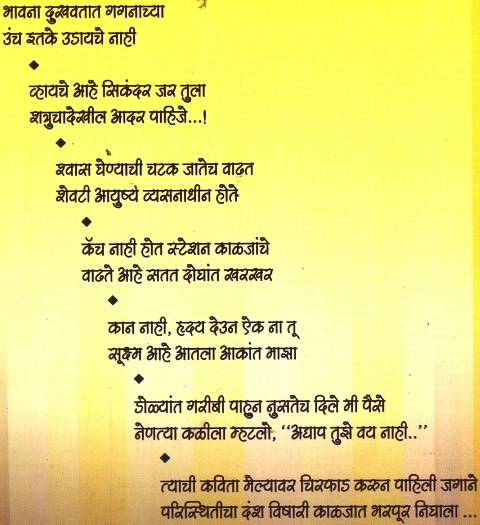 भावना दुखवतात गगनाच्या
उंच इतके उडायचे नाही
व्हायचे आहे सिकंदर जर तुला
शत्रुचादेखील आदर पाहिजे...!
श्वास घेण्याची चटक जातेच वाढत
शेवटी आयुष्ये व्यसनाधीन होते
कॅच नाही होत स्टेशन काळजांचे
वाढते आहे सतत दोघांत खरखर
कान नाही, हृदय देउन ऐक ना तू
सूक्ष्म आहे आतला आकांत माझा
डोळ्यांत गरीबी पाहुन नुसतेच दिले मी पैसे
नेणत्या कळीला म्हटलो, “अद्याप तुझे वय नाही..”
त्याची कविता मेल्यावर चिरफाड करुन पाहिली जगाने
परिस्थितीचा दंश विषारी काळजात भरपूर निघाला ...